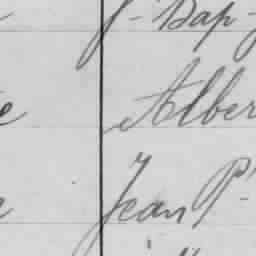 J-Bap-
Alber
Jean P